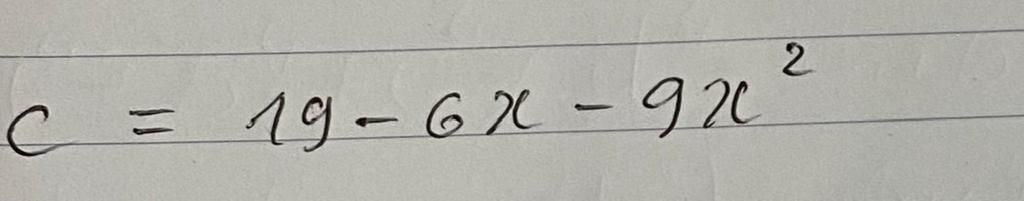 C = 19 - 6x - 9x²